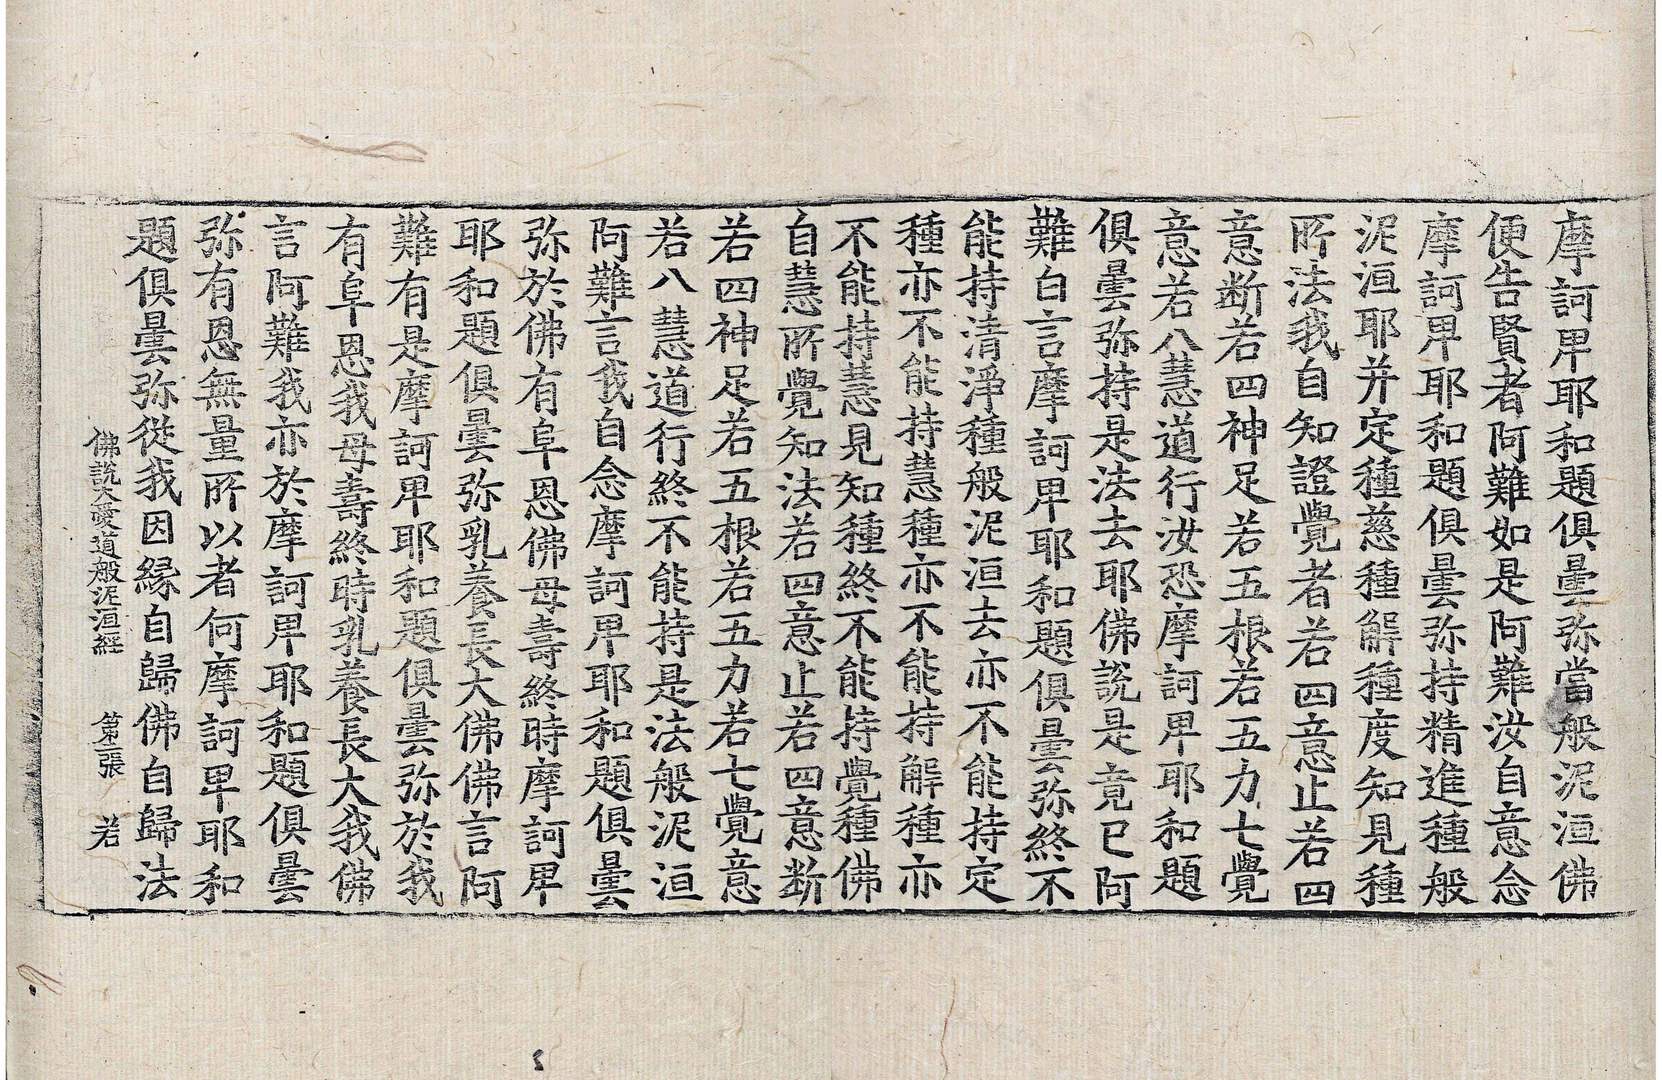 摩訶卑耶和題俱曇弥當般泥洹佛
便告賢者阿難如是阿難汝自意念
摩訶卑耶和題俱曇弥持精進種般
泥洹耶并定種慈種解種度知見種
所法我自知證覺者若四意止若四
意断若四神足若五根若五力七覺
意若八慧道行汝恐摩訶卑耶和題
俱曇弥持是法去耶佛說是竟已阿
難白言摩訶卑耶和題俱曇弥終不
能持清淨種般泥洹去亦不能持定
種亦不能持慧種亦不能持解種亦
不能持慧見知種終不能持覺種佛
自慧所覺知法若四意止若四意断
若四神足若五根若五力若七覺意
若八慧道行終不能持是法般泥洹
阿難言我自念摩訶卑耶和題俱曇
弥於佛有阜恩佛母壽終時摩訶卑
耶和題俱曇弥乳養長大佛佛言阿
難有是摩訶卑耶和題俱曇弥於我
有阜恩我母壽終時乳養長大我佛
言阿難我亦於摩訶卑耶和題俱曇
弥有恩無量所以者何摩訶卑耶和
題俱曇弥從我因縁自歸佛自歸法
佛說大愛道般泥洹經 第二張 若